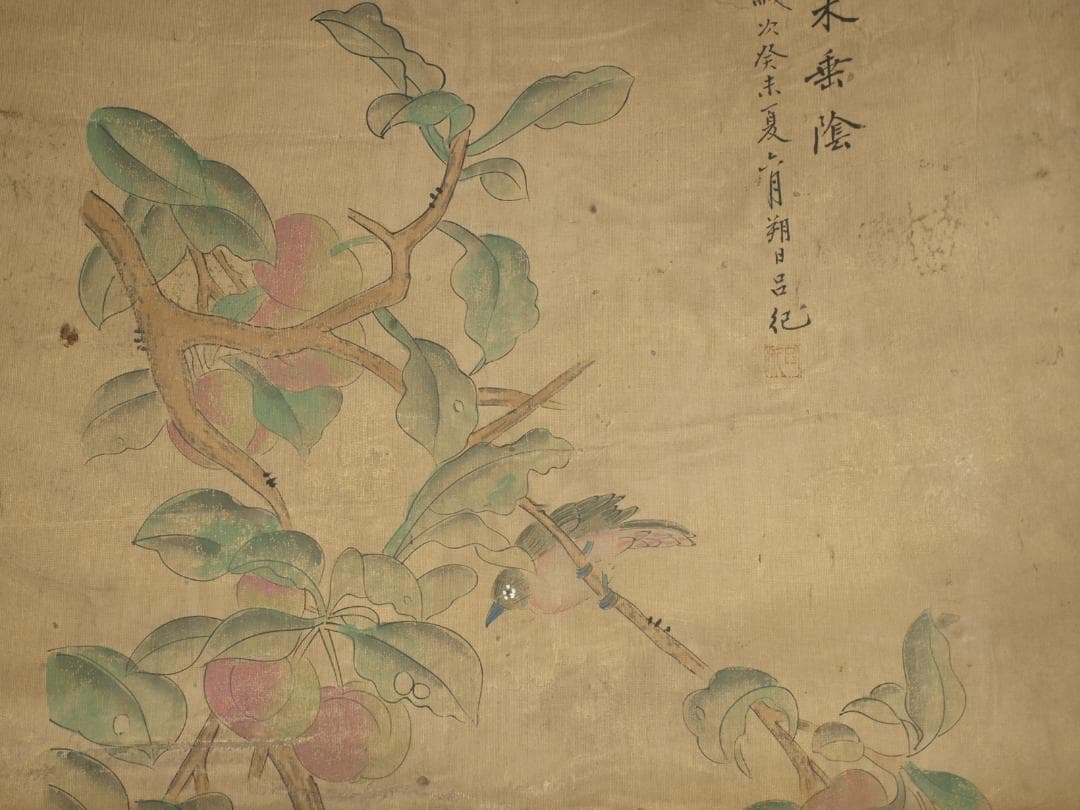 木垂陰
歲次癸未夏六月朔日呂紀